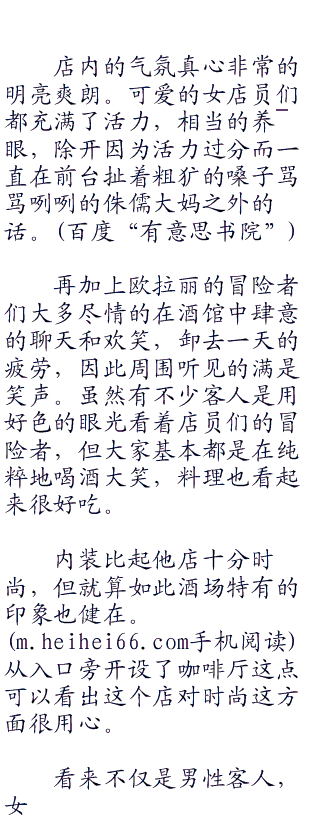 店内的气氛真心非常的
明亮爽朗。可爱的女店员们
都充满了活力，相当的养
眼，除开因为活力过分而一
直在前台扯着粗犷的嗓子骂
骂咧咧的侏儒大妈之外的
话。(百度“有意思书院”)
再加上欧拉丽的冒险者
们大多尽情的在酒馆中肆意
的聊天和欢笑，卸去一天的
疲劳，因此周围听见的满是
笑声。虽然有不少客人是用
好色的眼光看着店员们的冒
险者，但大家基本都是在纯
粹地喝酒大笑，料理也看起
来很好吃。
内装比起他店十分时
尚，但就算如此酒场特有的
印象也健在。
(m.heihei66.com手机阅读)
从入口旁开设了咖啡厅这点
可以看出这个店对时尚这方
面很用心。
看来不仅是男性客人，
女